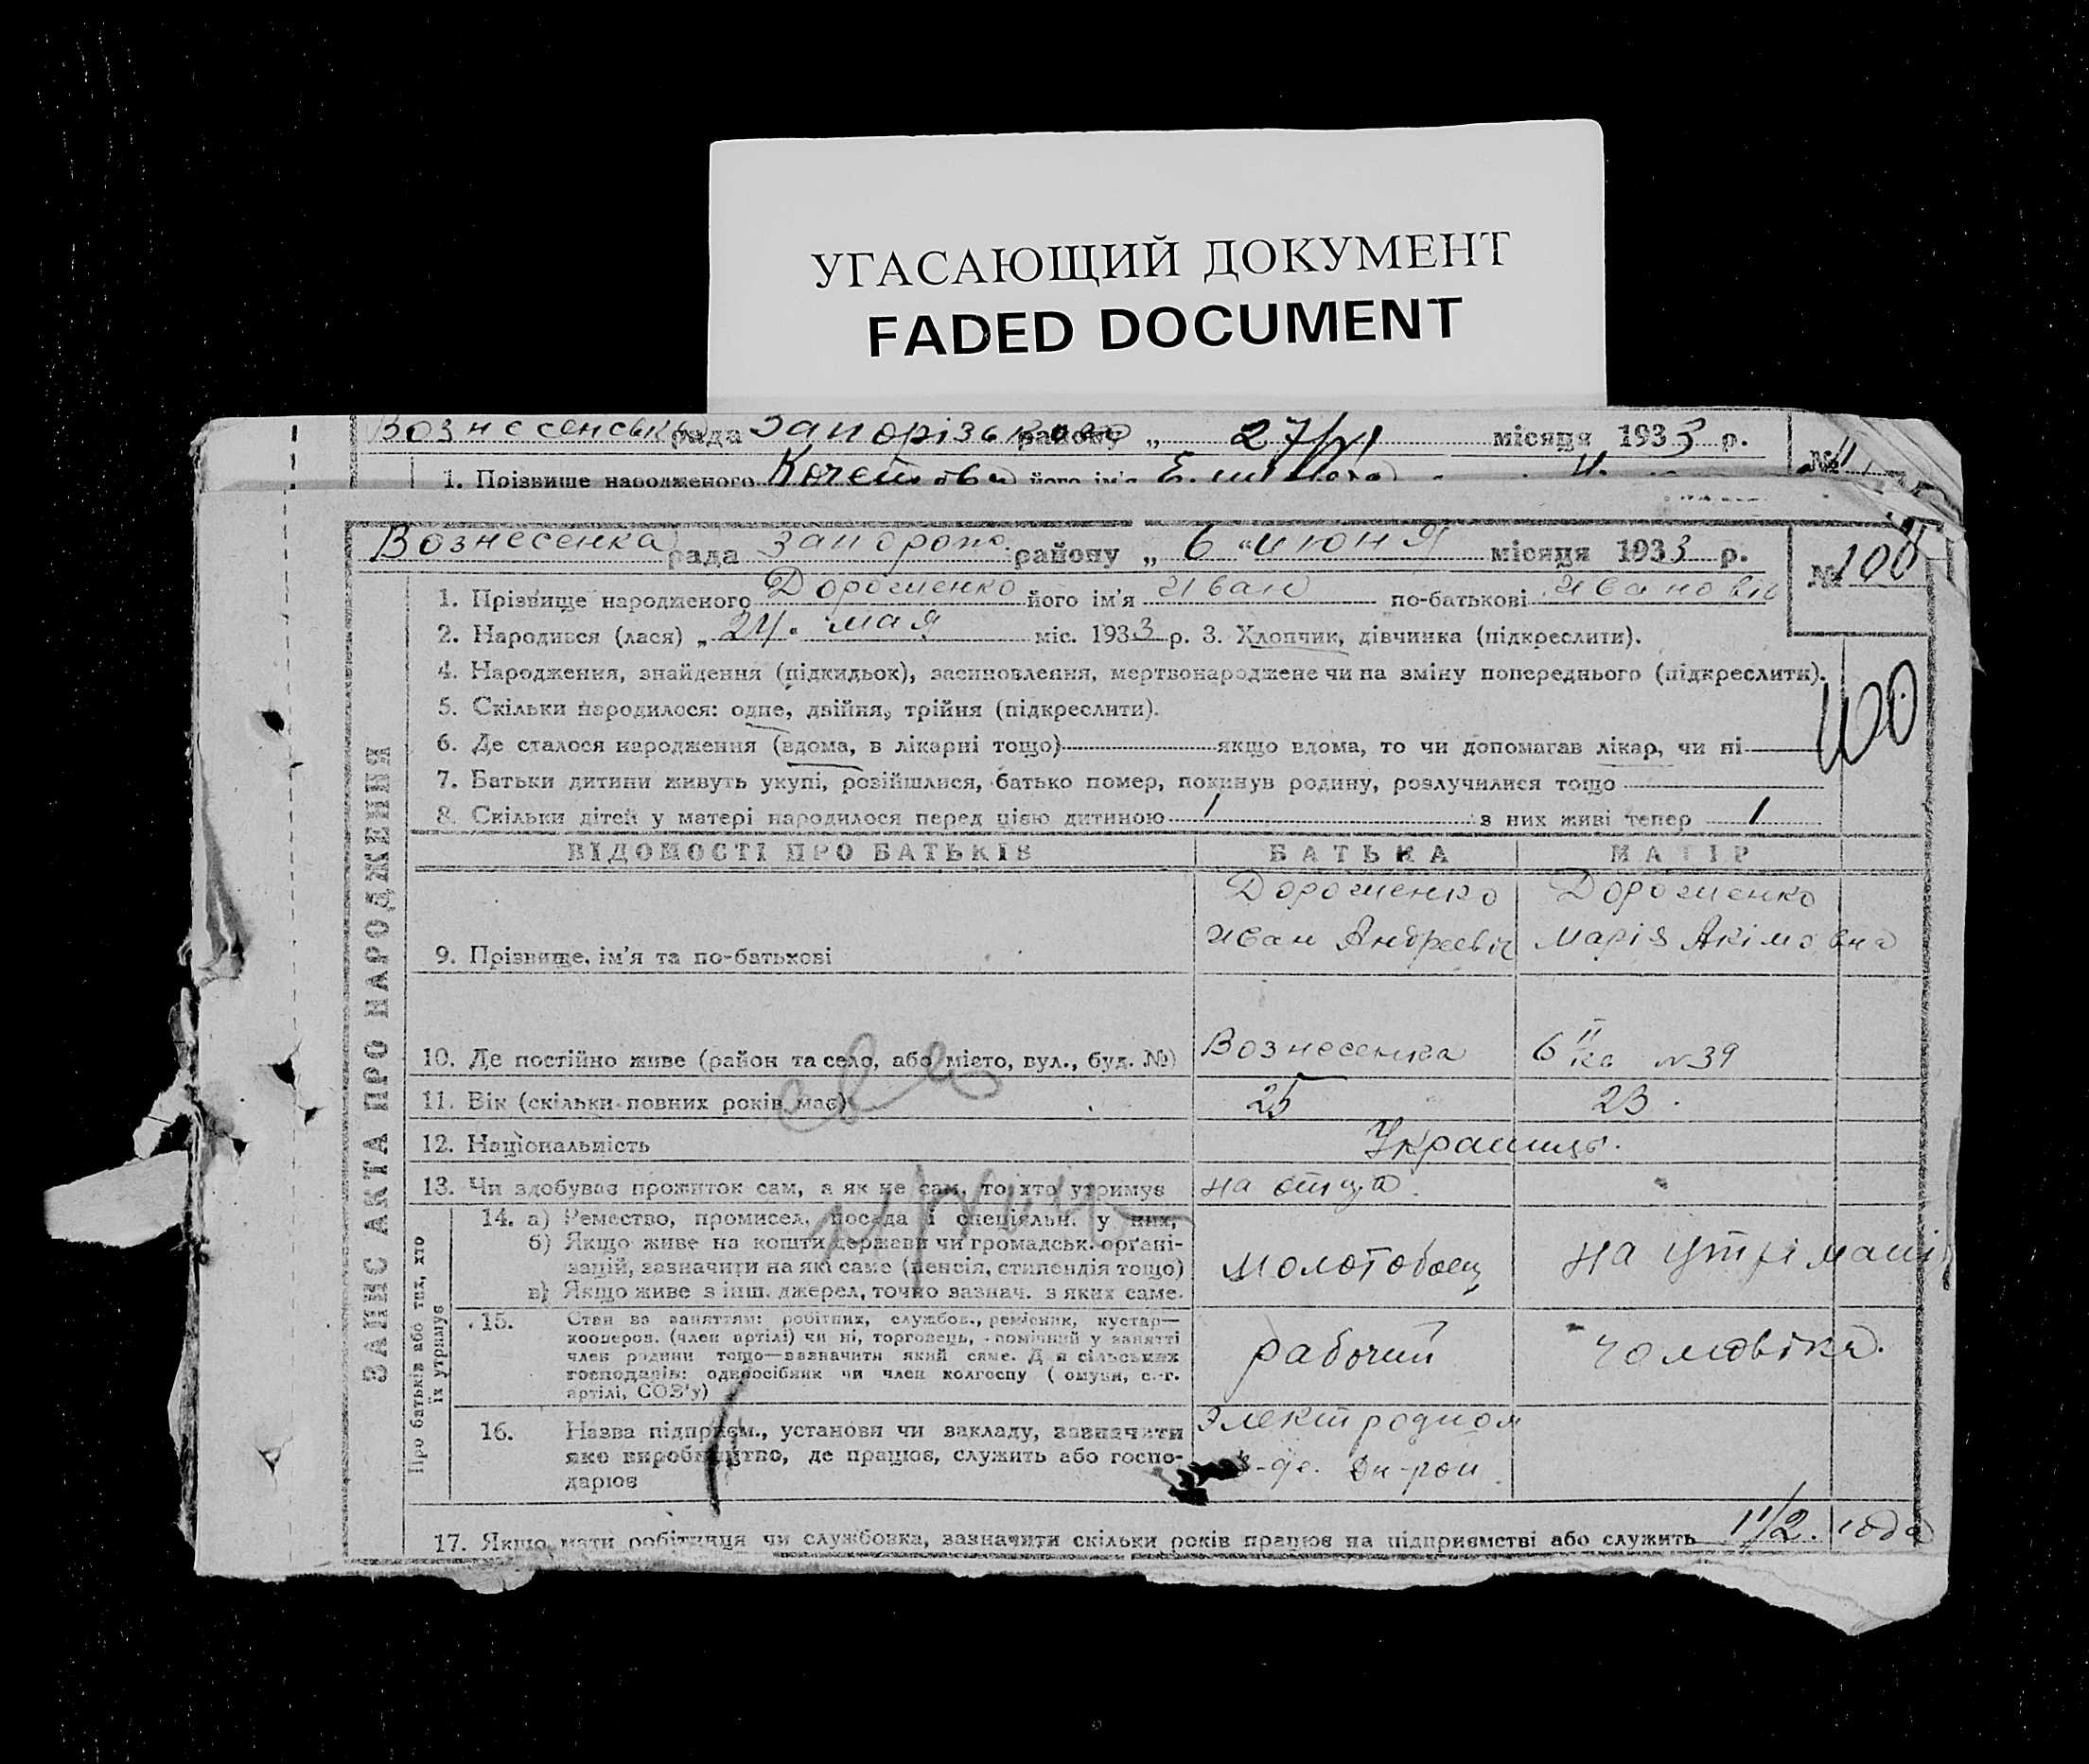 УГАСАЮЩИЙ ДОКУМЕНТ
FADED DOCUMENT
Вознесенська рада Запорізького району „ 27/VI місяця 1933 р.
№
1. Прізвище народженого його ім'я
Вознесенка рада Запорож. районy „ 6 " июня місяця 1933 р.
№ 100
1. Прізвище народженого Дорошенко його ім'я Иван по-батькові Ивановіч
2. Народився (лася) „ 24. мая міс. 1933 р. 3. Хлопчик, дівчинка (підкреслити).
4. Народження, знайдення (підкидьок), засиновлення, мертвонароджене чи на зміну попереднього (підкреслити).
100
5. Скільки народилося: одне, двійня, трійня (підкреслити).
6. Де сталося народження (вдома, в лікарні тощо) якщо вдома, то чи допомагав лікар, чи ні
7. Батьки дитини живуть укупі, розійшлися, батько помер, покинув родину, розлучилися тощо
8. Скільки дітей у матері народилося перед цією дитиною 1 з них живі тепер 1
ЗАПИС АКТА ПРО НАРОДЖЕННЯ
ВІДОМОСТІ ПРО БАТЬКІВ БАТЬКА МАТІР
Дорошенко Дорошенко
Иван Андреевіч Марія Акімовна
9. Прізвище, ім'я та по-батькові
10. Де постійно живе (район та село, або місто, вул., буд. №) Вознесенка 6 II ка N 39
11. Вік (скільки повних років має) 25 23.
12. Національність Украинцы.
13. Чи здобуває прожиток сам, а як не сам, то хто утримує на отца.
Про батьків або тих, хто їх утримує
14. а) Ремество, промисел, посада і спеціяльн. у них,
б) Якщо живе на кошти держави чи громадськ. орґані-
зацій, зазначити на які саме (пенсія, стипендія тощо) молотобоец на утрімані
в) Якщо живе з інш. джерел, точно зазнач. з яких саме.
15. Стан за заняттям: робітник, службов., ремісник, кустар—
кооперов. (член артілі) чи ні, торговець, помічний у занятті
член родини тощо—зазначити який саме. Для сільських рабочий чоловіка.
господарів: одноосібник чи член колгоспу (комуни, с.-г.
артілі, СОЗ'у)
16. Назва підприєм., установи чи закладу, зазначити Электродном
яке виробництво, де працює, служить або госпо- з-де.
дарює
17. Якщо мати робітниця чи службовка, зазначити скільки років працює на підприємстві або служить 1 1/2. года